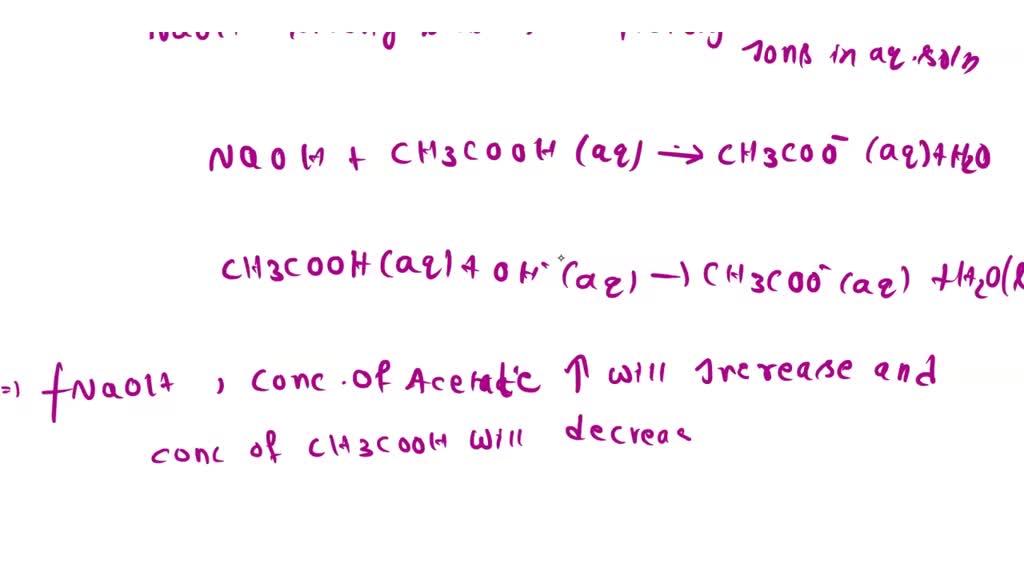 Ions in aq.soln
NaOH + CH3COOH (aq) → CH3COO⁻ (aq) + H2O
CH3COOH (aq) + OH⁻ (aq) → CH3COO⁻ (aq) + H2O(l
=) NaOH , conc. of Acetate ↑ will Increase and
conc of CH3COOH will decreas